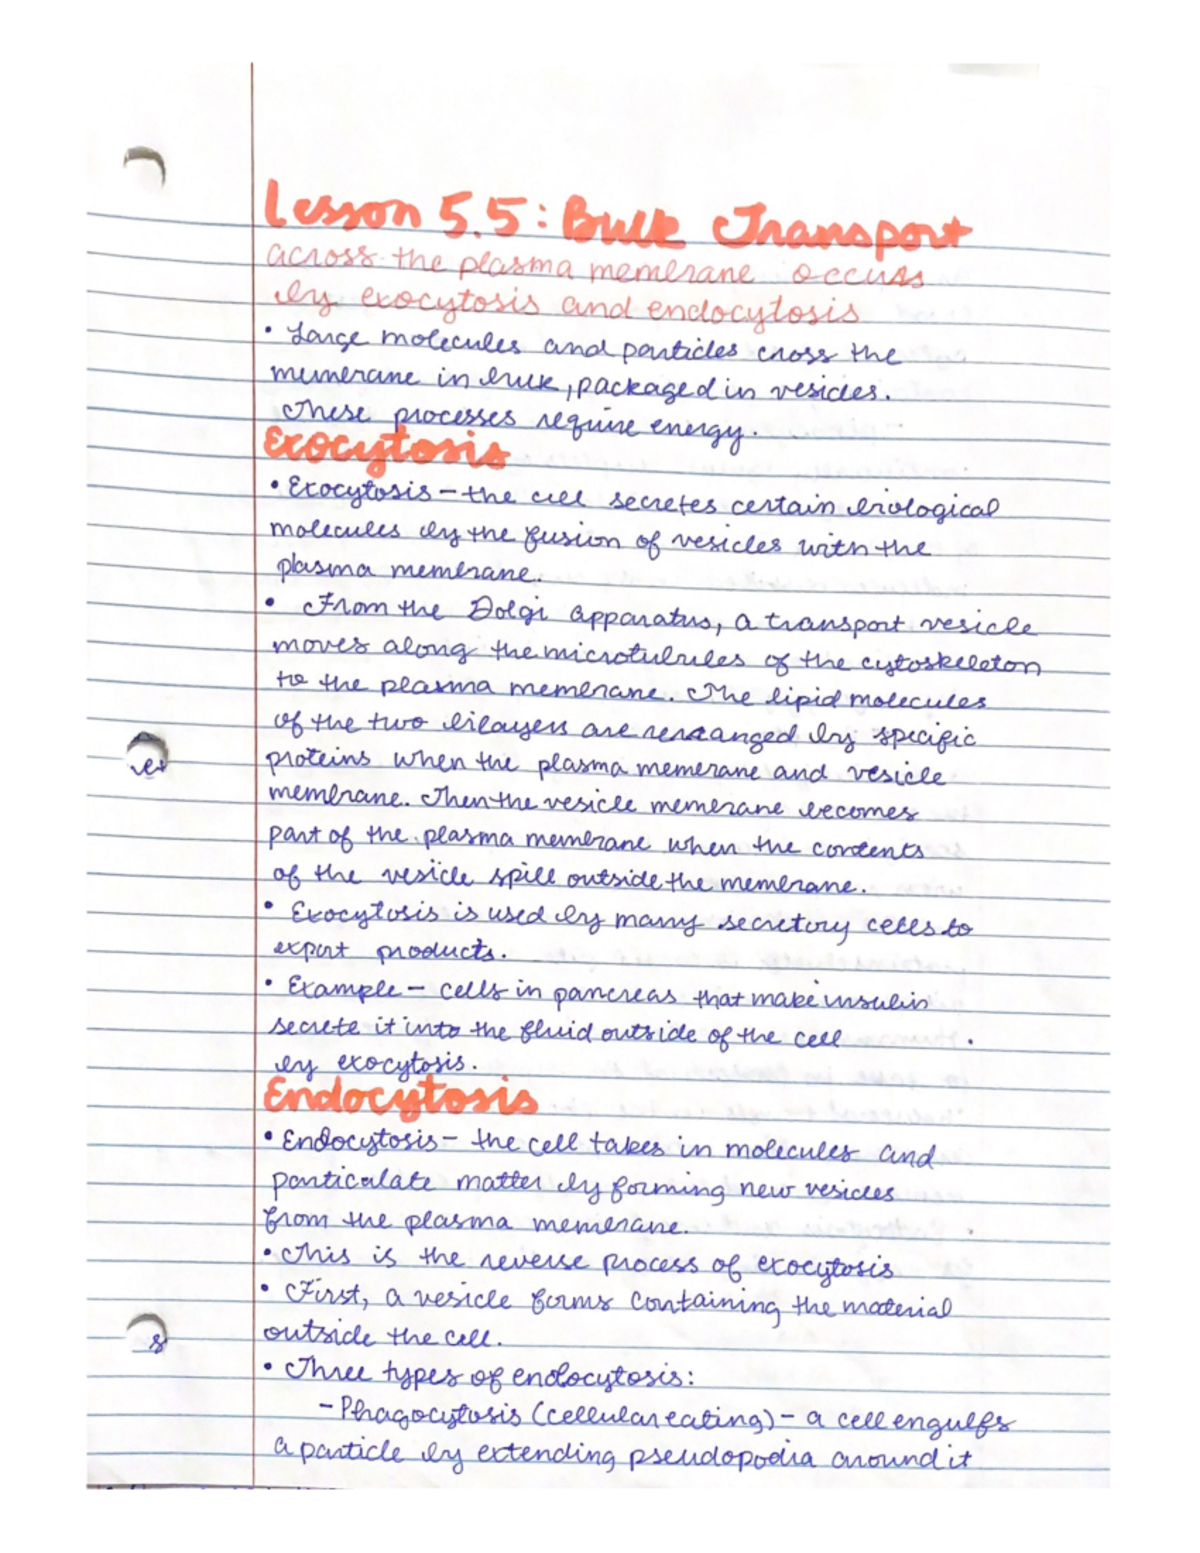 Lesson 5.5: Bulk Transport
across the plasma membrane occurs
by exocytosis and endocytosis
• Large molecules and particles cross the
membrane in bulk, packaged in vesicles.
These processes require energy.
Exocytosis
• Exocytosis - the cell secretes certain biological
molecules by the fusion of vesicles with the
plasma membrane.
• From the Golgi apparatus, a transport vesicle
moves along the microtubules of the cytoskeleton
to the plasma membrane. The lipid molecules
of the two bilayers are rearranged by specific
proteins when the plasma membrane and vesicle
membrane. Then the vesicle membrane becomes
part of the plasma membrane when the contents
of the vesicle spill outside the membrane.
• Exocytosis is used by many secretory cells to
export products.
• Example - cells in pancreas that make insulin
secrete it into the fluid outside of the cell
by exocytosis.
Endocytosis
• Endocytosis - the cell takes in molecules and
particulate matter by forming new vesicles
from the plasma membrane.
• This is the reverse process of exocytosis
• First, a vesicle forms containing the material
outside the cell.
• Three types of endocytosis:
- Phagocytosis (cellular eating) - a cell engulfs
a particle by extending pseudopodia around it